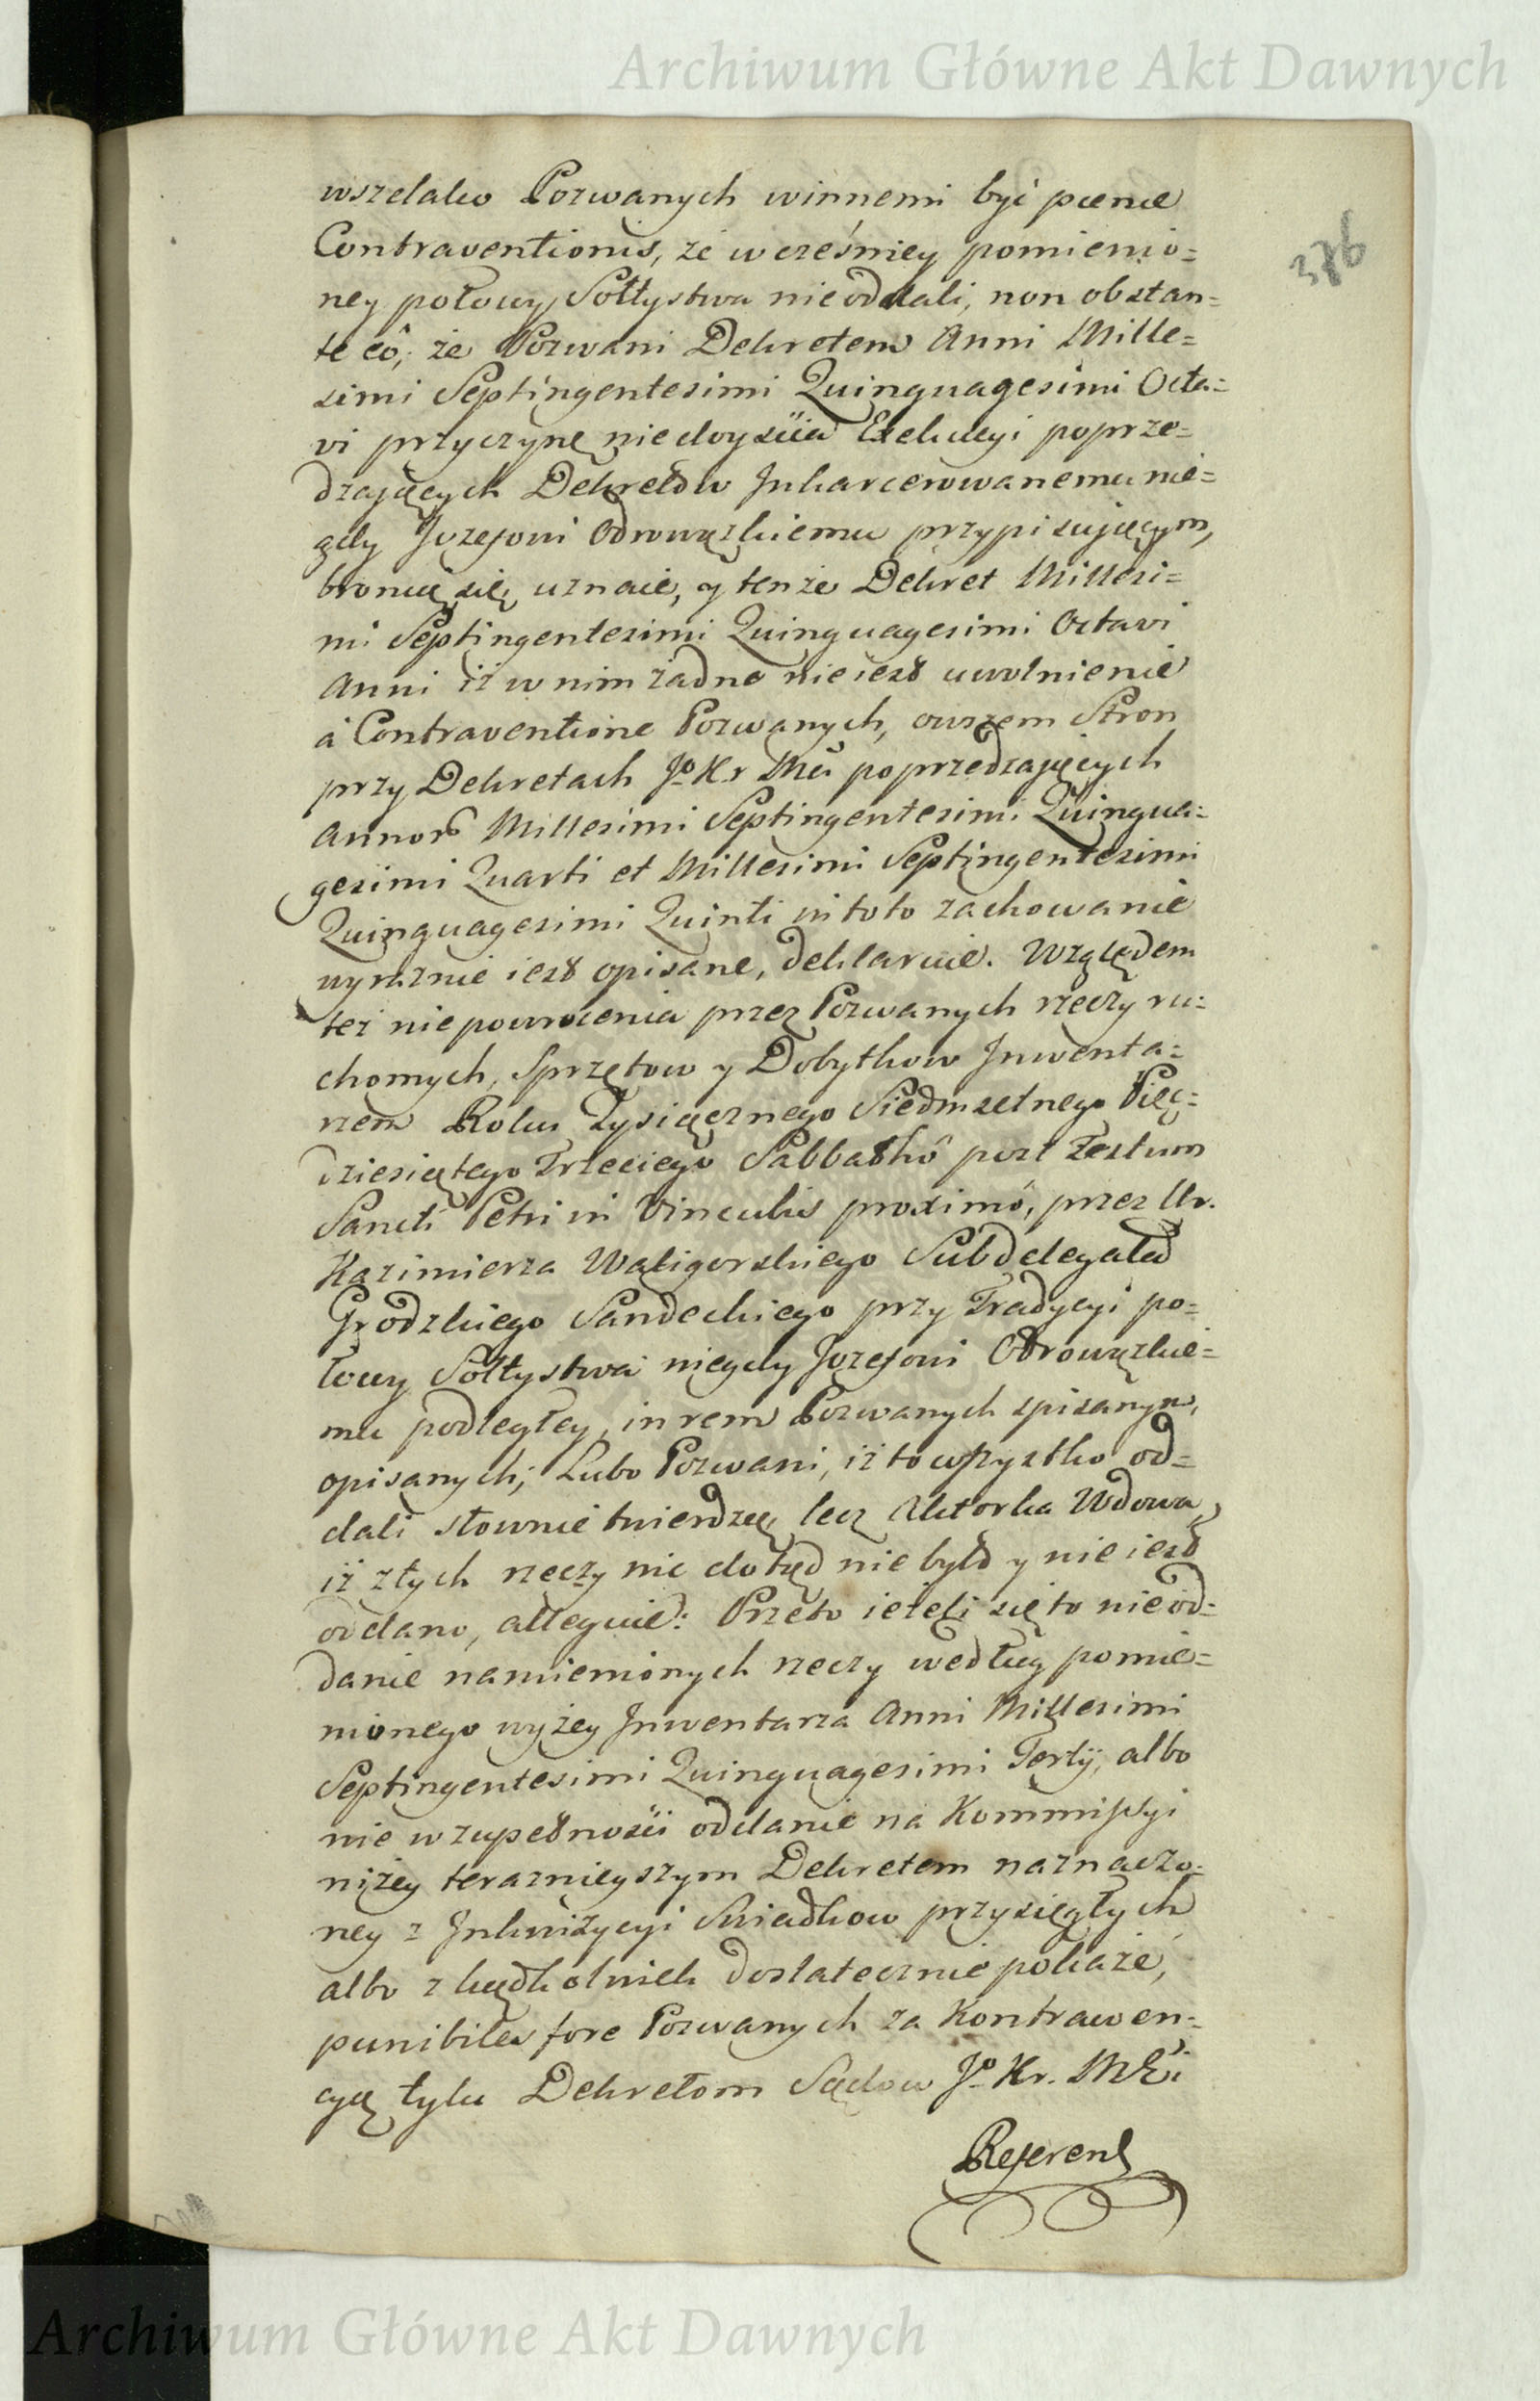 Archiwum Główne Akt Dawnych
376
wszelako Pozwanych winnemi być pœnæ
Contraventionis, że wcześniey pomienio=
ney połowy Sołtystwa nieoddali, non obstan=
te eô, że Pozwani Dekretem Anni Mille=
simi Septingentesimi Quinquagesimi Octa=
vi przyczynę niedoyścia Exekucyi poprze=
dzaiących Dekretow Inkarcerowanemu nie=
gdy Jozefowi Odrowązkiemu przypisuiącym,
bronią się, uznaie, y tenże Dekret Millesi=
mi Septingentesimi Quinquagesimi Octavi
Anni iż w nim żadne nie iest uwolnienie
à Contraventione Pozwanych, owszem Stron
przy Dekretach Jº Kr Mći poprzedzaiących
Annor̃ Millesimi Septingentesimi Quinqua=
gesimi Quarti et Millesimi Septingentesimi
Quinquagesimi Quinti in toto zachowanie
wyraznie iest opisane, deklaruie. Względem
też niepowrocenia przez Pozwanych rzeczy ru=
chomych, Sprzętow y Dobytkow Inwenta=
rzem Roku Tysiącznego Siedmsetnego Pięć=
dziesiątego Trzeciego Sabbathô post Festum
Sancti Petri in Vinculis proximô, przez Ur.
Kazimierza Waligorskiego Subdelegata
Grodzkiego Sandeckiego przy Tradycyi po=
łowy Sołtystwa niegdy Jozefowi Odrowązkie=
mu podległey, in rem Pozwanych spisanym,
opisanych; Lubo Pozwani, iż to wszystko od=
dali słownie twierdzą, lecz Aktorka Wdowa,
iż z tych rzeczy nic dotąd nie było y nie iest
oddano, alleguie: Przeto ieżeli się to nieod=
danie namienionych rzeczy według pomie=
nionego wyżey Inwentarza Anni Millesimi
Septingentesimi Quinquagesimi Tertij, albo
nie w zupełności oddanie na Kommissyi
niżey teraznieyszym Dekretem naznaczo=
ney z Inkwizycyi Swiadkow przysięgłych,
albo z kądkolwiek dostatecznie pokaże,
punibiles fore Pozwanych za Kontrawen=
cyą tylu Dekretom Sądow Jº Kr. Mći
Referent
Archiwum Główne Akt Dawnych